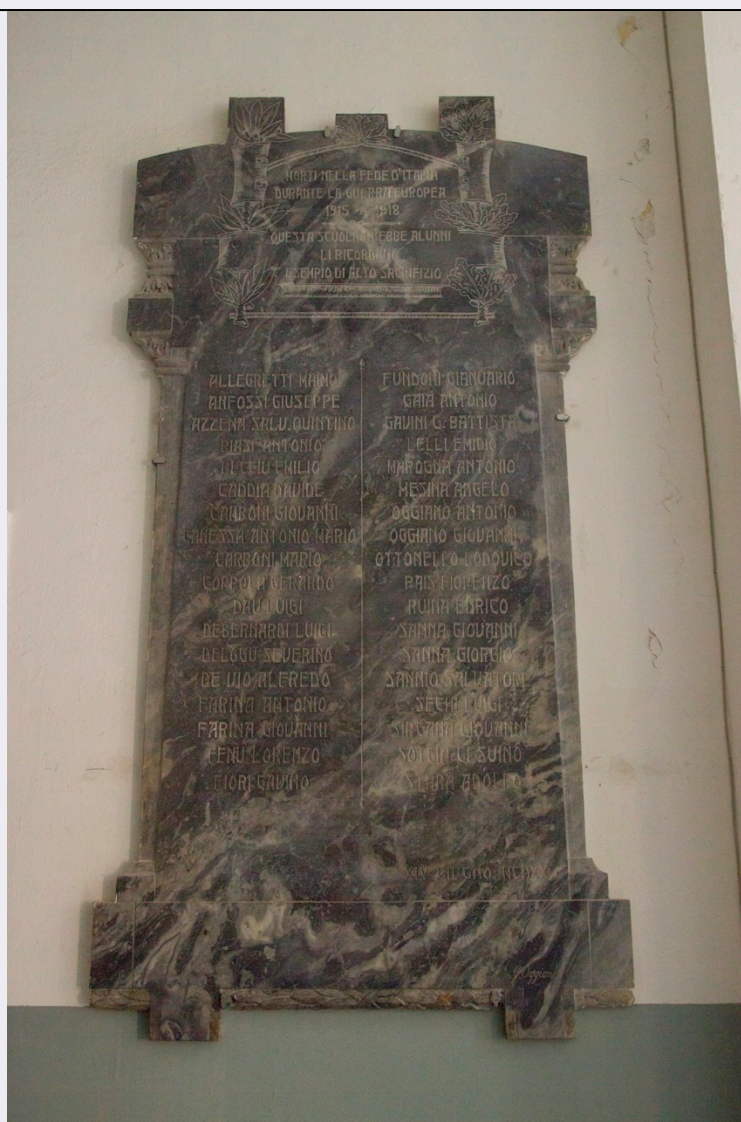 MORTI NELLA FEDE D'ITALIA
DURANTE LA GUERRA EUROPEA
1915 1918
QUESTA SCUOLA EBBE ALUNNI
LI RICORDINO
ESEMPIO DI ALTO SACRIFIZIO
ALLEGRETTI MARIO
ANFOSSI GIUSEPPE
AZZENA SALV. QUINTINO
BIASI ANTONIO
EMILIO
CADDIA DAVIDE
CARBONI GIOVANNI
CANESSA ANTONIO MARIO
CARBONI MARIO
COPPOLA GERARDO
DAU LUIGI
DEBERNARDI LUIGI
DELOGU SEVERINO
DE VIO ALFREDO
FARINA ANTONIO
FARINA GIOVANNI
FENU LORENZO
FIORI GAVINO
FUNDONI GIANUARIO
GAIA ANTONIO
GAVINI G. BATTISTA
LELLI EMIDIO
MAROGNA ANTONIO
MESINA ANGELO
OGGIANO ANTONIO
OGGIANO GIOVANNI
OTTONELLO LODOVICO
PAIS FIORENZO
RUINA ENRICO
SANNA GIOVANNI
SANNA GIORGIO
SANNIO SALVATORE
SECHI LUIGI
GIOVANNI
ADOLFO
GIUGNO